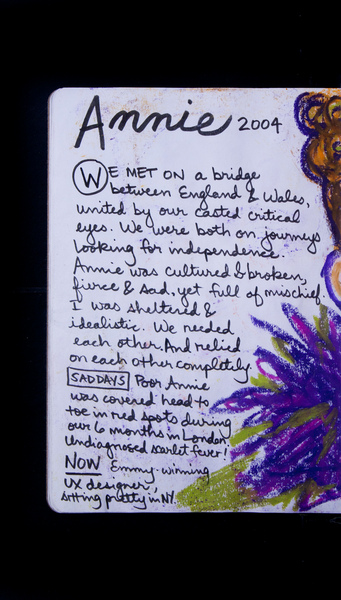 Annie 2004
WE MET ON a bridge
between England & Wales,
united by our casted critical
eyes. We were both on journeys
looking for independence.
Annie was cultured & broken,
fierce & sad, yet full of mischief.
I was sheltered &
idealistic. We needed
each other. And relied
on each other completely.
SAD DAYS Poor Annie
was covered head to
toe in red spots during
our 6 months in London.
Undiagnosed scarlet fever!
NOW Emmy-winning
UX designer,
sitting pretty in NY.